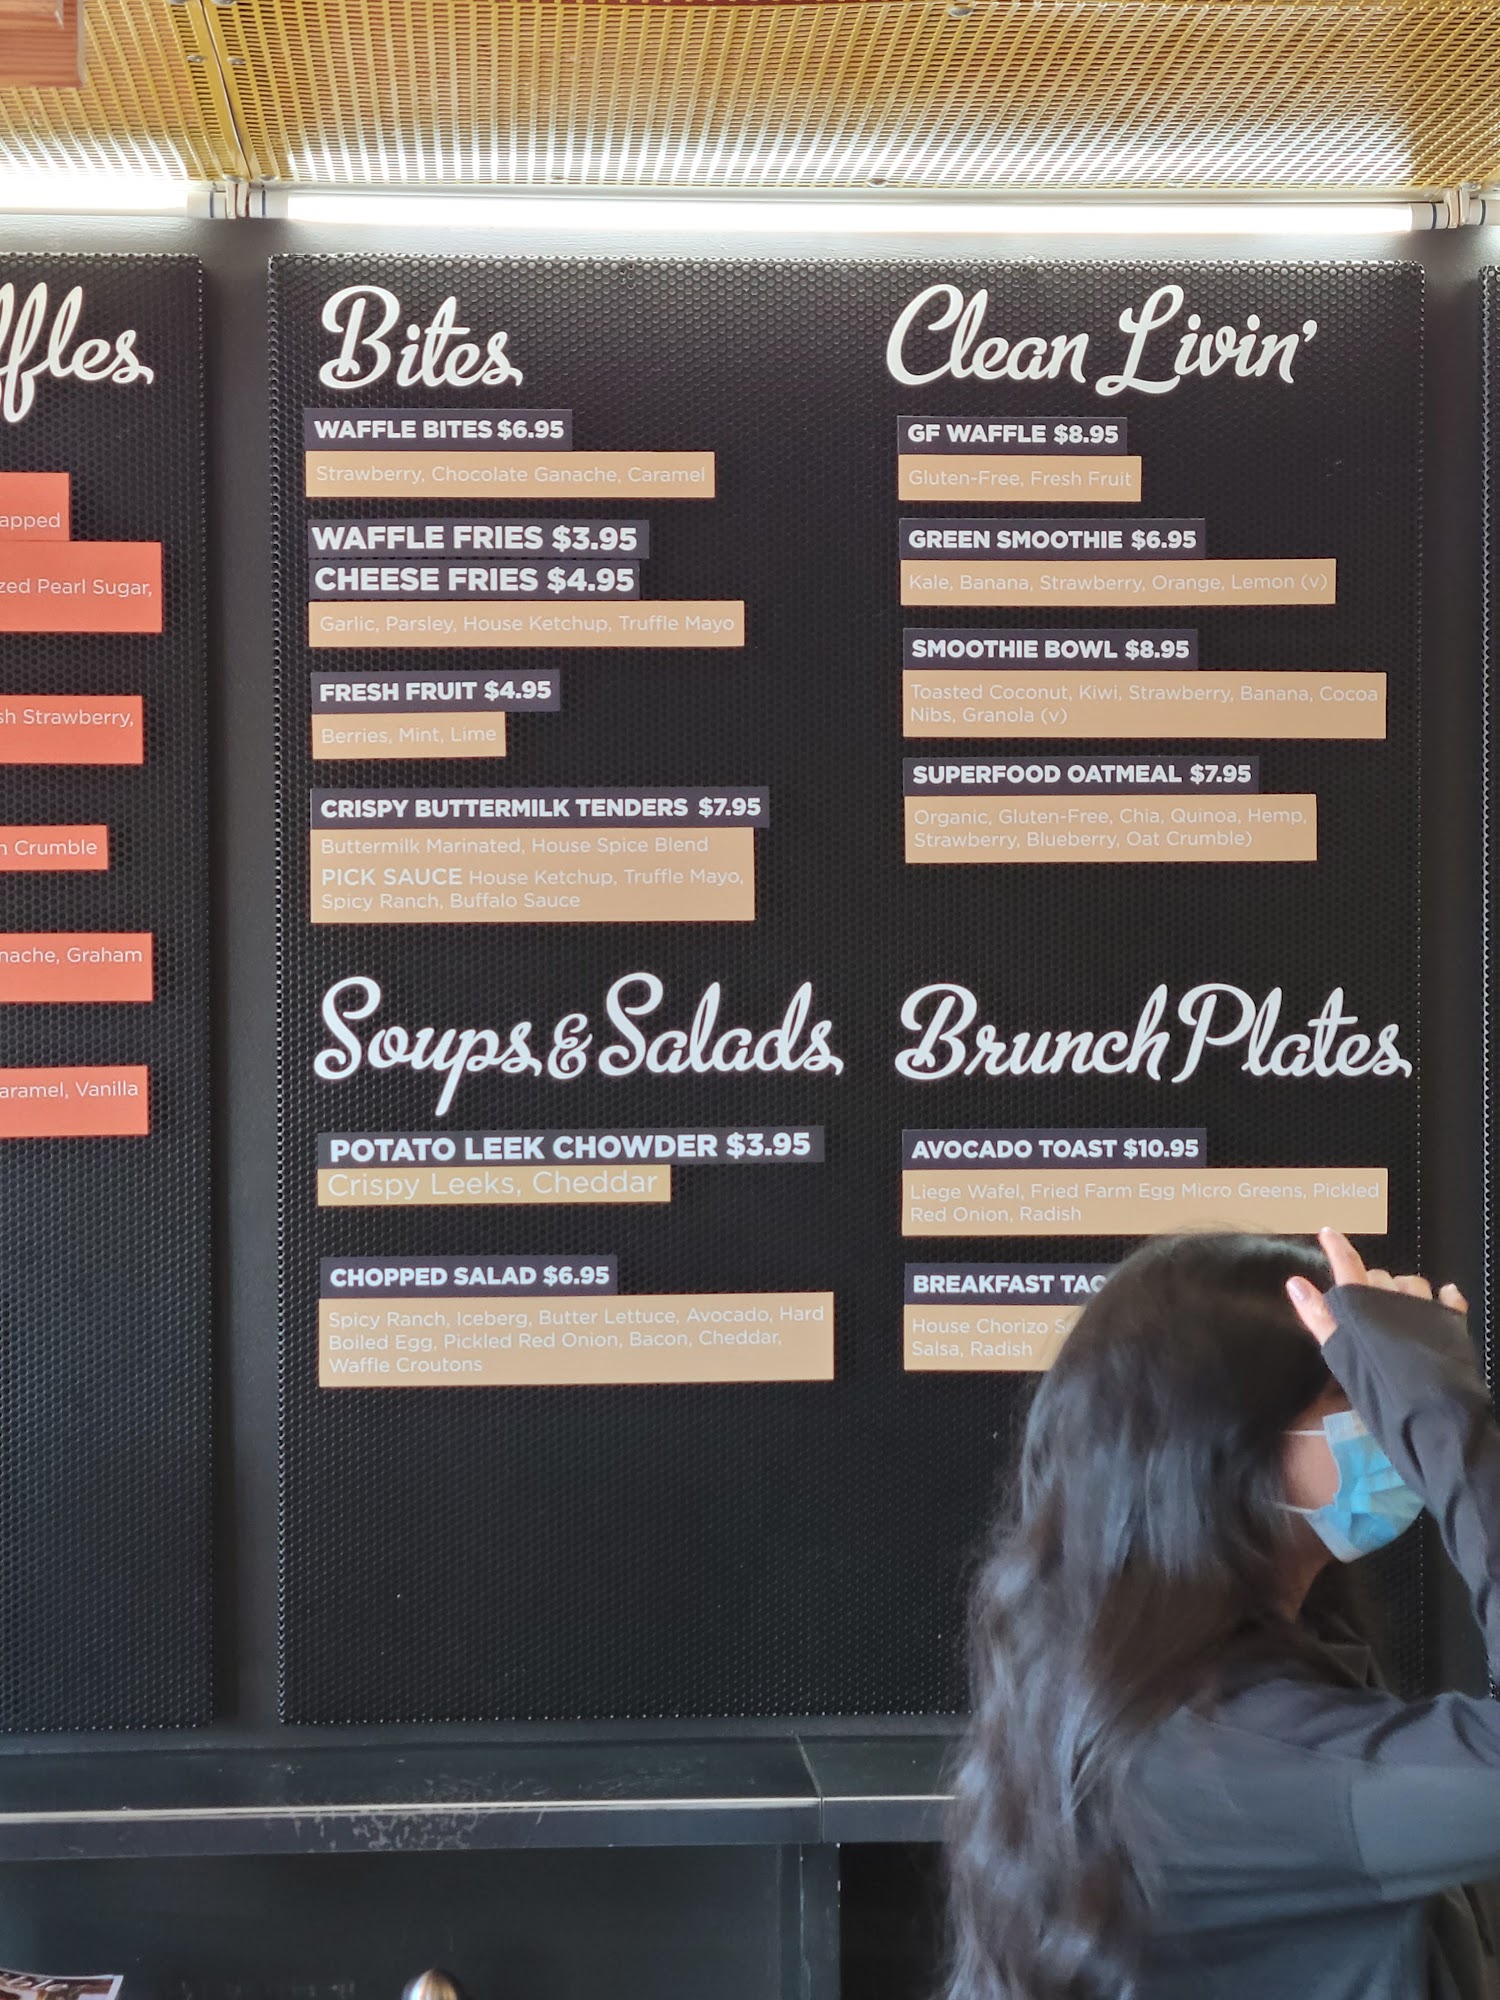 ffles
apped
zed Pearl Sugar,
sh Strawberry,
n Crumble
nache, Graham
aramel, Vanilla
Bites
WAFFLE BITES $6.95
Strawberry, Chocolate Ganache, Caramel
WAFFLE FRIES $3.95
CHEESE FRIES $4.95
Garlic, Parsley, House Ketchup, Truffle Mayo
FRESH FRUIT $4.95
Berries, Mint, Lime
CRISPY BUTTERMILK TENDERS $7.95
Buttermilk Marinated, House Spice Blend
PICK SAUCE House Ketchup, Truffle Mayo,
Spicy Ranch, Buffalo Sauce
Soups & Salads
POTATO LEEK CHOWDER $3.95
Crispy Leeks, Cheddar
CHOPPED SALAD $6.95
Spicy Ranch, Iceberg, Butter Lettuce, Avocado, Hard
Boiled Egg, Pickled Red Onion, Bacon, Cheddar,
Waffle Croutons
Clean Livin'
GF WAFFLE $8.95
Gluten-Free, Fresh Fruit
GREEN SMOOTHIE $6.95
Kale, Banana, Strawberry, Orange, Lemon (v)
SMOOTHIE BOWL $8.95
Toasted Coconut, Kiwi, Strawberry, Banana, Cocoa
Nibs, Granola (v)
SUPERFOOD OATMEAL $7.95
Organic, Gluten-Free, Chia, Quinoa, Hemp,
Strawberry, Blueberry, Oat Crumble)
Brunch Plates
AVOCADO TOAST $10.95
Liege Wafel, Fried Farm Egg Micro Greens, Pickled
Red Onion, Radish
BREAKFAST TAC
House Chorizo
Salsa, Radish